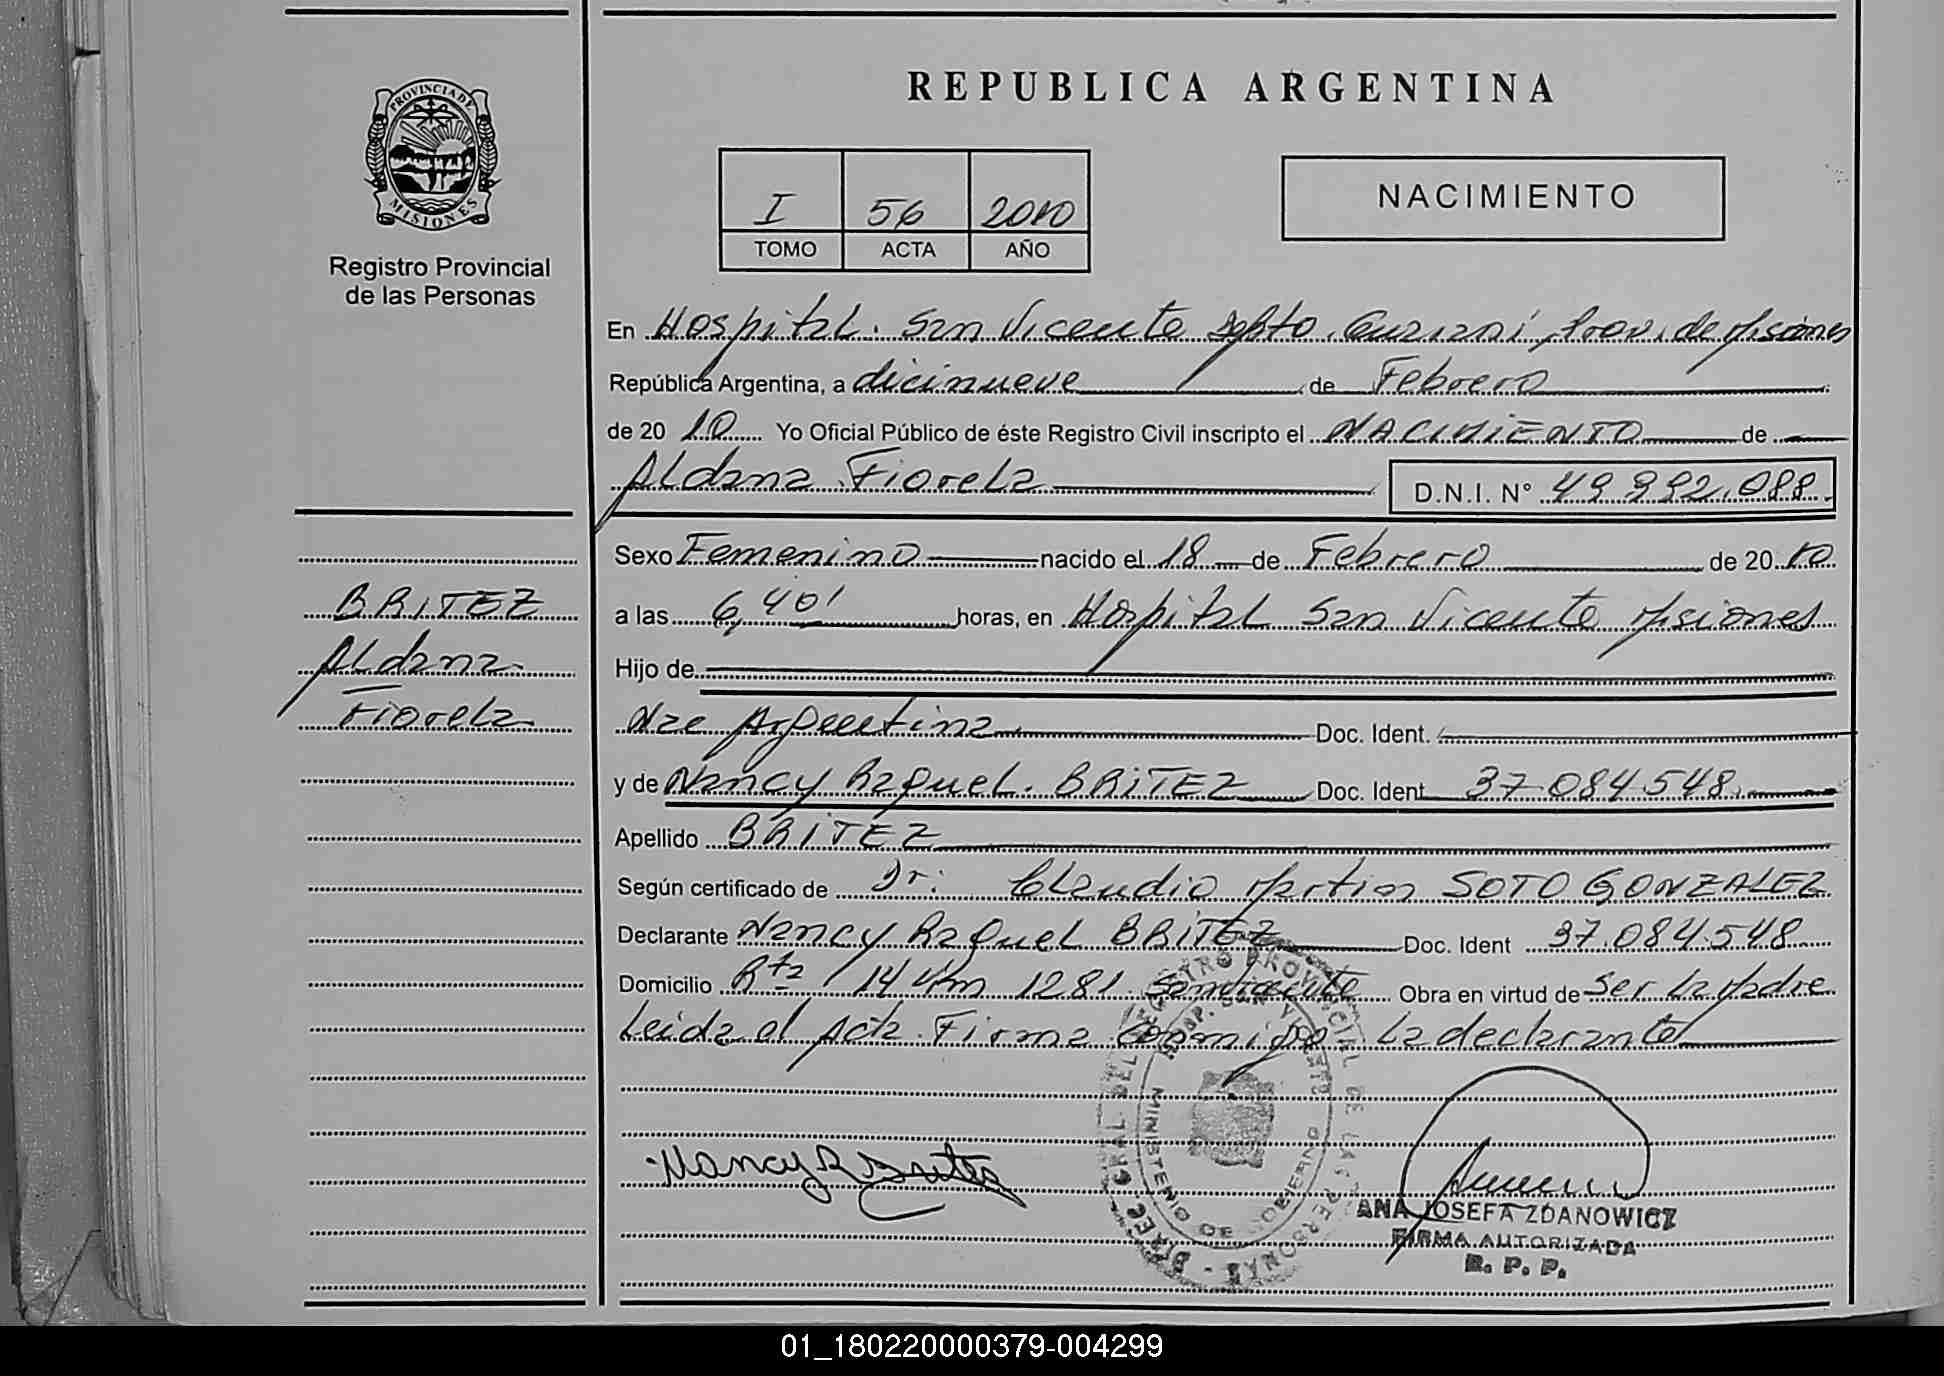 REPUBLICA ARGENTINA
PROVINCIA DE
MISIONES
Registro Provincial
de las Personas
I 56 2010
TOMO ACTA AÑO
NACIMIENTO
En Hospital. San Vicente Dpto. Guarani, Prov. de Misiones
República Argentina, a dicinueve de Febrero
de 20 10 Yo Oficial Público de éste Registro Civil inscripto el NACIMIENTO de
Aldana Fiorela D.N.I. N° 49.992.088
Sexo Femenino nacido el 18 de Febrero de 20 10
a las 6,40' horas, en Hospital San Vicente Misiones
Hijo de
Nac Argentina Doc. Ident.
y de Nancy Raquel. BRITEZ Doc. Ident 37.084.548
Apellido BRITEZ
Según certificado de Dr: Claudio Martin SOTO GONZALEZ
Declarante Nancy Raquel BRITEZ Doc. Ident 37.084.548
Domicilio Rta 14 Km 1281 San Vicente Obra en virtud de Ser La Madre
Leida el Acta. Firma Conmigo La declarante
BRITEZ
Aldana
Fiorela
Nancy R Britez
DIREC. GRAL. DEL REGISTRO PROVINCIAL DE LAS PERSONAS
MINISTERIO DE GOBIERNO
ANA JOSEFA ZDANOWICZ
FIRMA AUTORIZADA
R. P. P.
01_180220000379-004299